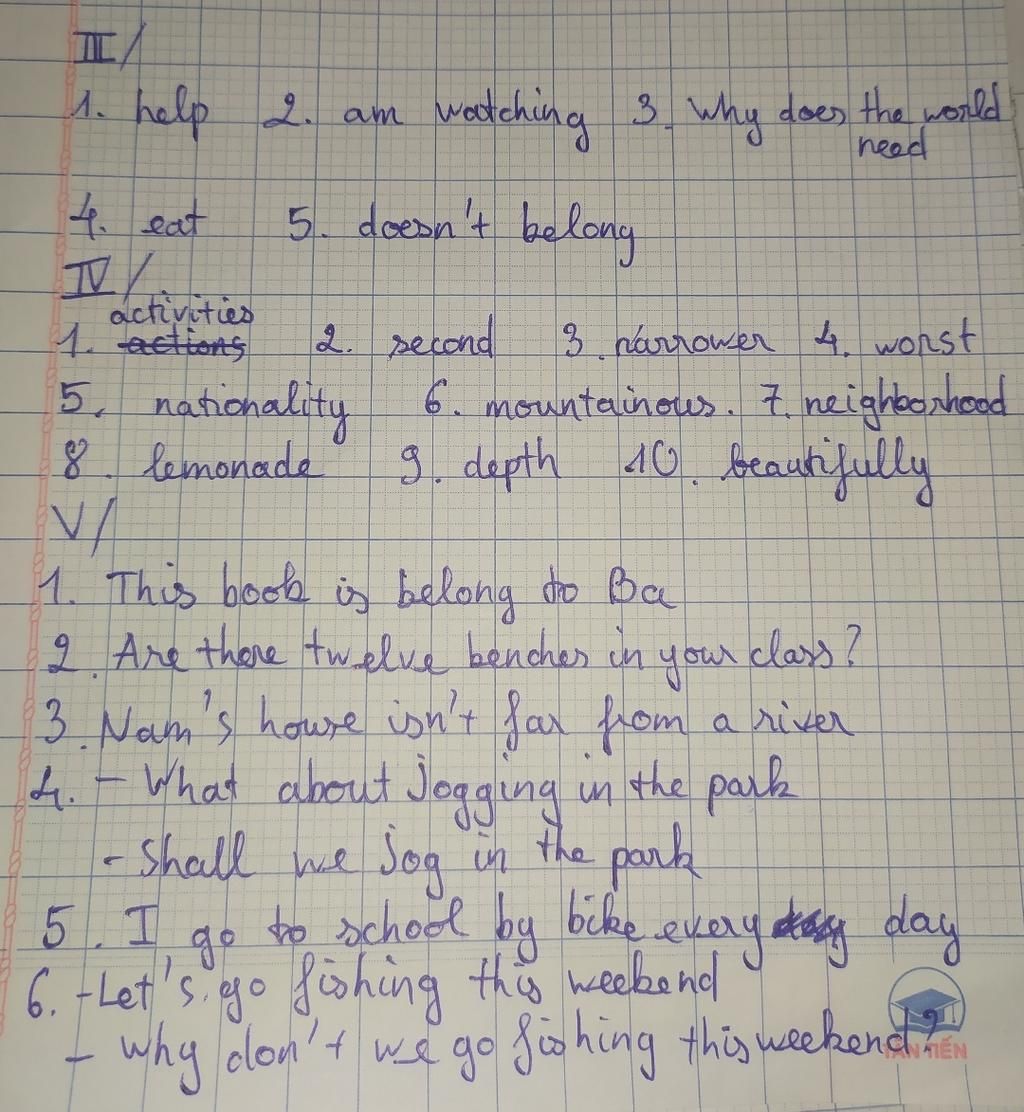 III/
1. help 2. am watching 3. Why does the world
need
4. eat 5. doesn't belong
IV/
activities
1. actions 2. second 3. narrower 4. worst
5. nationality 6. mountainous. 7. neighborhood
8. lemonade 9. depth 10. beautifully
V/
1. This book is belong to Ba
2. Are there twelve benches in your class?
3. Nam's house isn't far from a river
4. - What about jogging in the park
- Shall we jog in the park
5. I go to school by bike every day day
6. - Let's go fishing this weekend
- Why don't we go fishing this weekend?
TÂN TIẾN